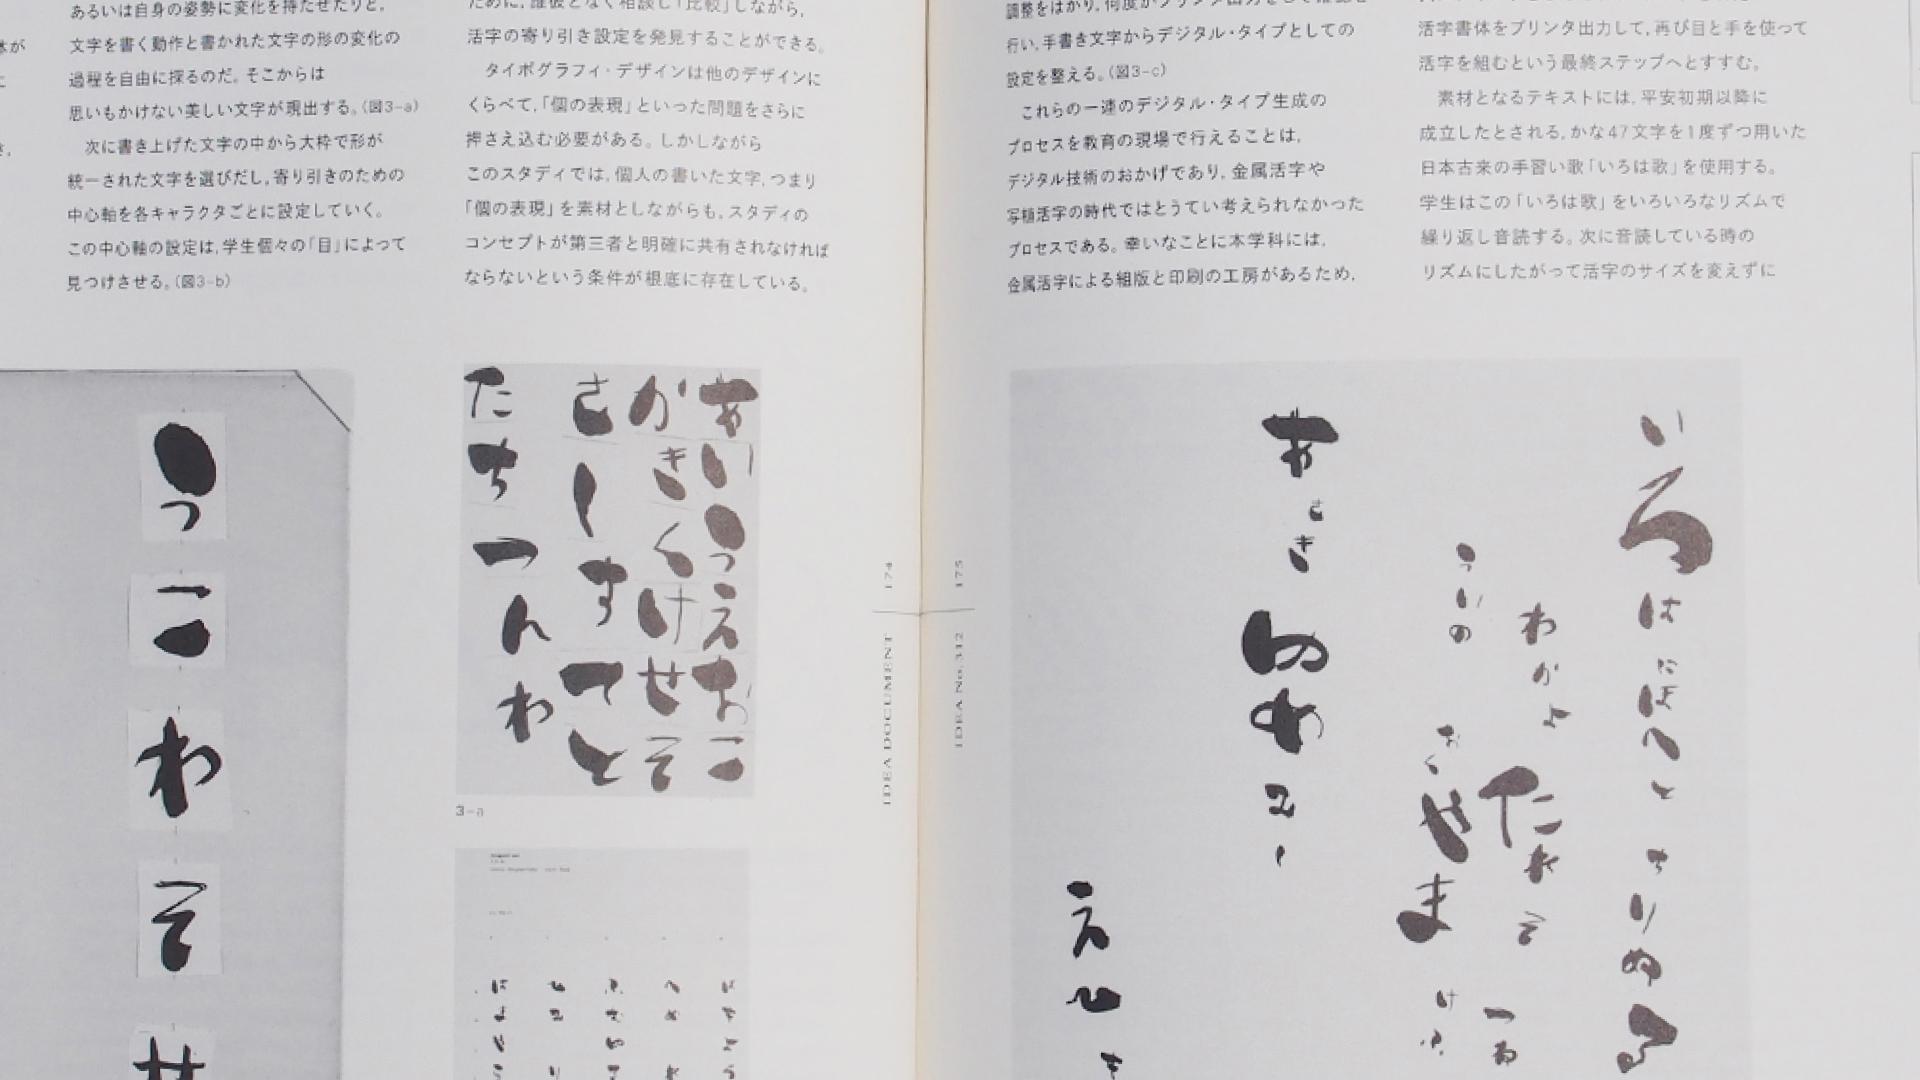 あるいは自身の姿勢に変化を持たせたりと、
文字を書く動作と書かれた文字の形の変化の
過程を自由に探るのだ。そこからは
思いもかけない美しい文字が現出する。(図3-a)
次に書き上げた文字の中から大枠で形が
統一された文字を選びだし、寄り引きのための
中心軸を各キャラクタごとに設定していく。
この中心軸の設定は、学生個々の「目」によって
見つけさせる。(図3-b)
ために、誰彼となく相談し「比較」しながら、
活字の寄り引き設定を発見することができる。
タイポグラフィ・デザインは他のデザインに
くらべて、「個の表現」といった問題をさらに
押さえ込む必要がある。しかしながら
このスタディでは、個人の書いた文字、つまり
「個の表現」を素材としながらも、スタディの
コンセプトが第三者と明確に共有されなければ
ならないという条件が根底に存在している。
調整をはかり、何度かプリンタ出力をして確認を
行い、手書き文字からデジタル・タイプとしての
設定を整える。(図3-c)
これらの一連のデジタル・タイプ生成の
プロセスを教育の現場で行えることは、
デジタル技術のおかげであり、金属活字や
写植活字の時代ではとうてい考えられなかった
プロセスである。幸いなことに本学科には、
金属活字による組版と印刷の工房があるため、
活字書体をプリンタ出力して、再び目と手を使って
活字を組むという最終ステップへとすすむ。
素材となるテキストには、平安初期以降に
成立したとされる、かな47文字を1度ずつ用いた
日本古来の手習い歌「いろは歌」を使用する。
学生はこの「いろは歌」をいろいろなリズムで
繰り返し音読する。次に音読している時の
リズムにしたがって活字のサイズを変えずに
うこわそせ
あいうえおこ
かきくけせそ
さしすてと
たちつんわ
3-a
IDEA DOCUMENT 174
IDEA No.312 175
いろはにほへと ちりぬる
わかよたれそ つね
うゐの
おくやま けふ
あさきゆめみし
ゑひも